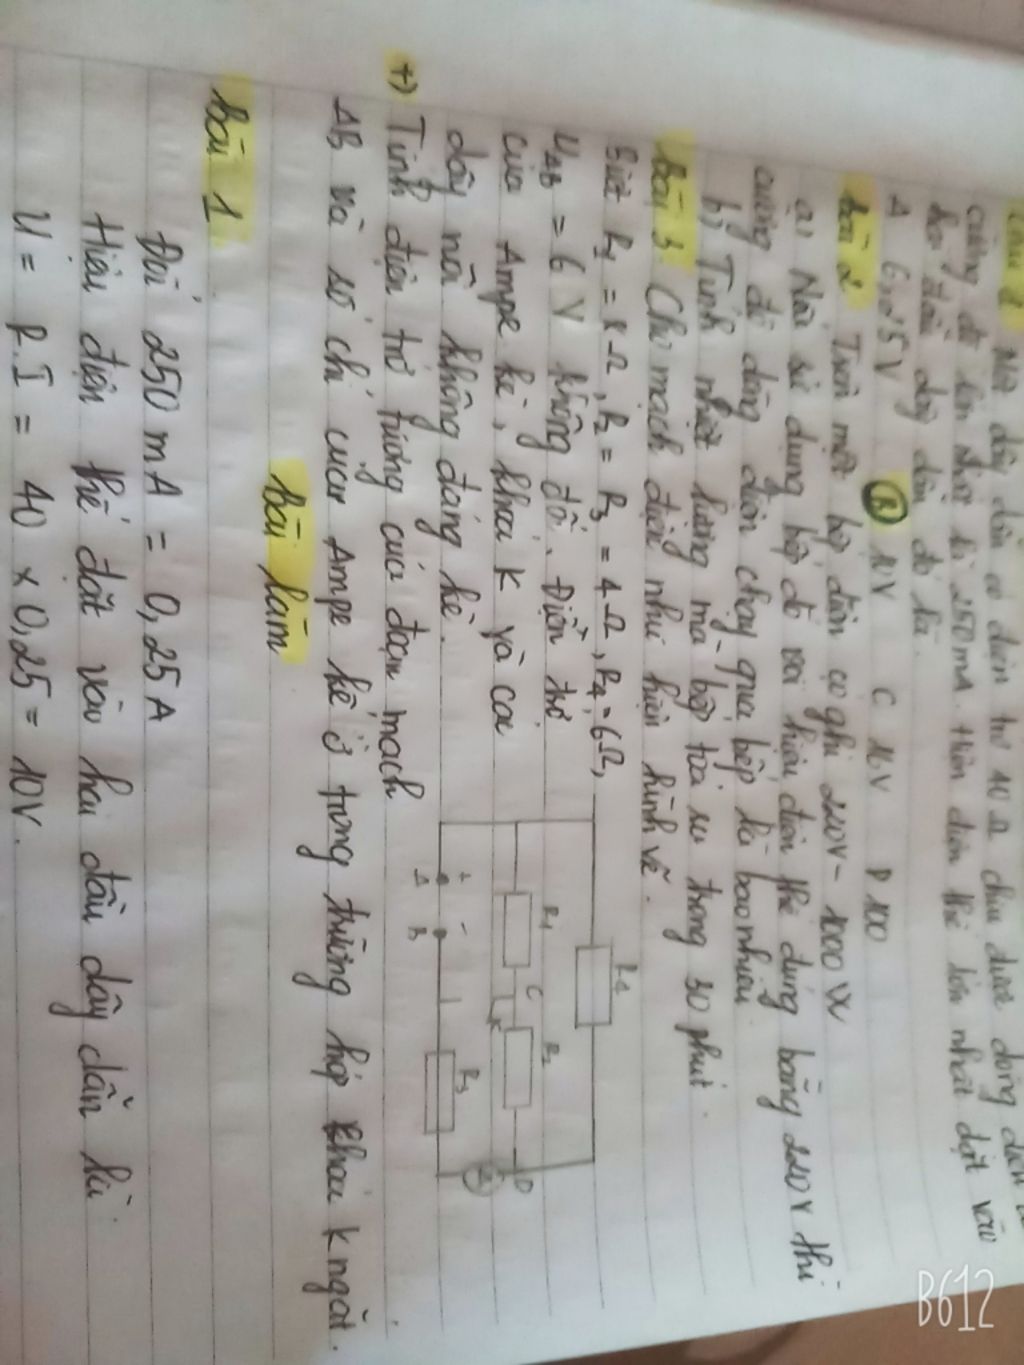 Một dây dẫn có điện trở 40 Ω chịu được dòng điện có
cường độ lớn nhất là 250mA. Hiệu điện thế lớn nhất đặt vào
hai đầu dây dẫn đó là.
A 6,25V B 10V C 16V D 100
bài 2 Trên một bếp điện có ghi 220V - 1000W
a) Nếu sử dụng bếp đó với hiệu điện thế đúng bằng 220V thì
cường độ dòng điện chạy qua bếp là bao nhiêu
b) Tính nhiệt lượng mà bếp tỏa ra trong 30 phút.
bài 3 Cho mạch điện như hiện hình vẽ.
Biết R1 = 8Ω, R2 = R3 = 4Ω, R4 = 6Ω,
UAB = 6 V không đổi. Điện trở
của Ampe kế, khoá K và các
dây nối không đáng kể.
+) Tính điện trở tương của đoạn mạch
AB và số chỉ của Ampe kế ở trong trường hợp khoá K ngắt.
R4
R1
C
R2
D
+
-
A
B
R3
A
bài làm
bài 1
Đổi 250 mA = 0,25A
Hiệu điện thế đặt vào hai đầu dây dẫn là:
U = R.I = 40 x 0,25 = 10V.
B612